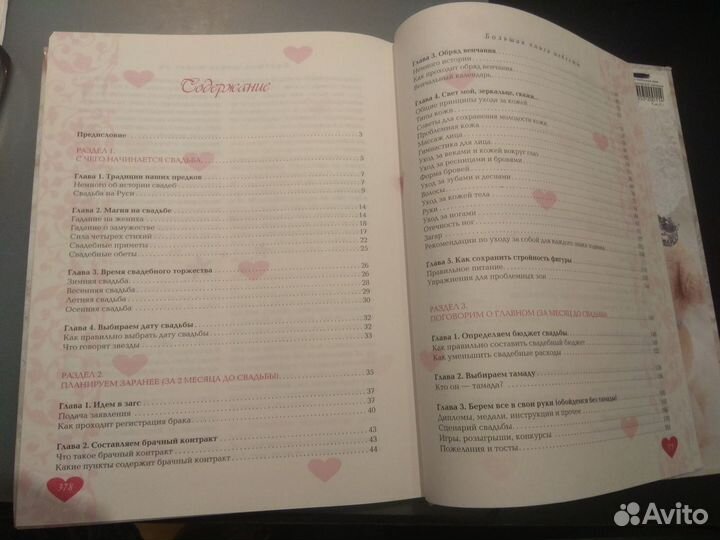 Содержание
Предисловие 3
РАЗДЕЛ 1.
С ЧЕГО НАЧИНАЕТСЯ СВАДЬБА 5
Глава 1. Традиции наших предков 7
Немного об истории свадеб 7
Свадьба на Руси 9
Глава 2. Магия на свадьбе 14
Гадание на жениха 14
Гадание о замужестве 18
Сила четырех стихий 17
Свадебные приметы 22
Свадебные обеты 25
Глава 3. Время свадебного торжества 26
Зимняя свадьба 26
Весенняя свадьба 28
Летняя свадьба 29
Осенняя свадьба 30
Глава 4. Выбираем дату свадьбы 32
Как правильно выбрать дату свадьбы 32
Что говорят звезды 33
РАЗДЕЛ 2.
ПЛАНИРУЕМ ЗАРАНЕЕ (ЗА 2 МЕСЯЦА ДО СВАДЬБЫ) 35
Глава 1. Идем в загс 37
Подача заявления 37
Как проходит регистрация брака 40
Глава 2. Составляем брачный контракт 43
Что такое брачный контракт 43
Какие пункты содержит брачный контракт 44
378
Большая книга невесты
Глава 3. Обряд венчания
Немного истории
Как проходит обряд венчания
Венчальный календарь
Глава 4. Свет мой, зеркальце, скажи
Общие принципы ухода за кожей
Типы кожи
Советы для сохранения молодости кожи
Проблемная кожа
Массаж лица
Гимнастика для лица
Уход за веками и кожей вокруг глаз
Уход за ресницами и бровями
Форма бровей
Уход за зубами и деснами
Волосы
Уход за кожей тела
Руки
Уход за ногами
Отечность ног
Загар
Рекомендации по уходу за собой для каждого знака зодиака
Глава 5. Как сохранить стройность фигуры
Правильное питание
Упражнения для проблемных зон
РАЗДЕЛ 3.
ПОГОВОРИМ О ГЛАВНОМ (ЗА МЕСЯЦ ДО СВАДЬБЫ)
Глава 1. Определяем бюджет свадьбы
Как правильно составить свадебный бюджет
Как уменьшить свадебные расходы
Глава 2. Выбираем тамаду
Кто он — тамада?
Глава 3. Берем все в свои руки (обойдемся без тамады)
Дипломы, медали, инструкции и прочее
Сценарий свадьбы
Игры, розыгрыши, конкурсы
Пожелания и тосты
Avito